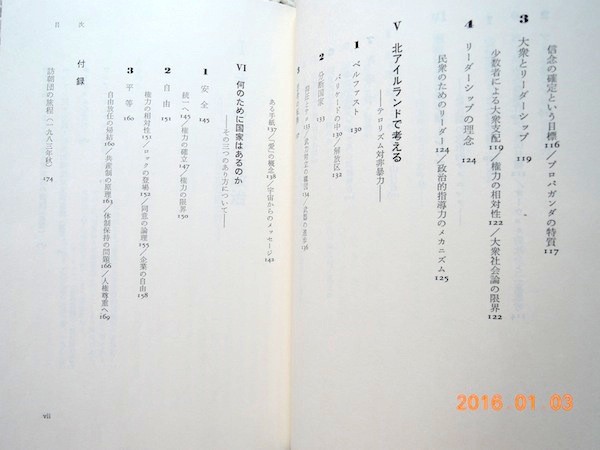 信念の確定という目標 116／プロパガンダの特質 117
3 大衆とリーダーシップ 119
少数者による大衆支配 119／権力の相対性 122／大衆社会論の限界 122
4 リーダーシップの理念 124
民衆のためのリーダー 124／政治的指導力のメカニズム 125
V 北アイルランドで考える
——テロリズム対非暴力——
1 ベルファスト 130
バリケードの中 130／解放区 132
2 分断国家 133
ある手紙 137／「愛」の概念 138／宇宙からのメッセージ 142
VI 何のために国家はあるのか
——その三つのあり方について——
1 安全 145
統一へ 145／権力の確立 147／権力の限界 150
2 自由 151
権力の相対性 151／ロックの登場 152／同意の論理 155／企業の自由 158
3 平等 160
自由放任の帰結 160／共産制の原理 163／体制保持の問題 166／人権尊重へ 169
付録
訪朝団の旅程（一九八三年秋） 174
目次
vii
2016.01.03